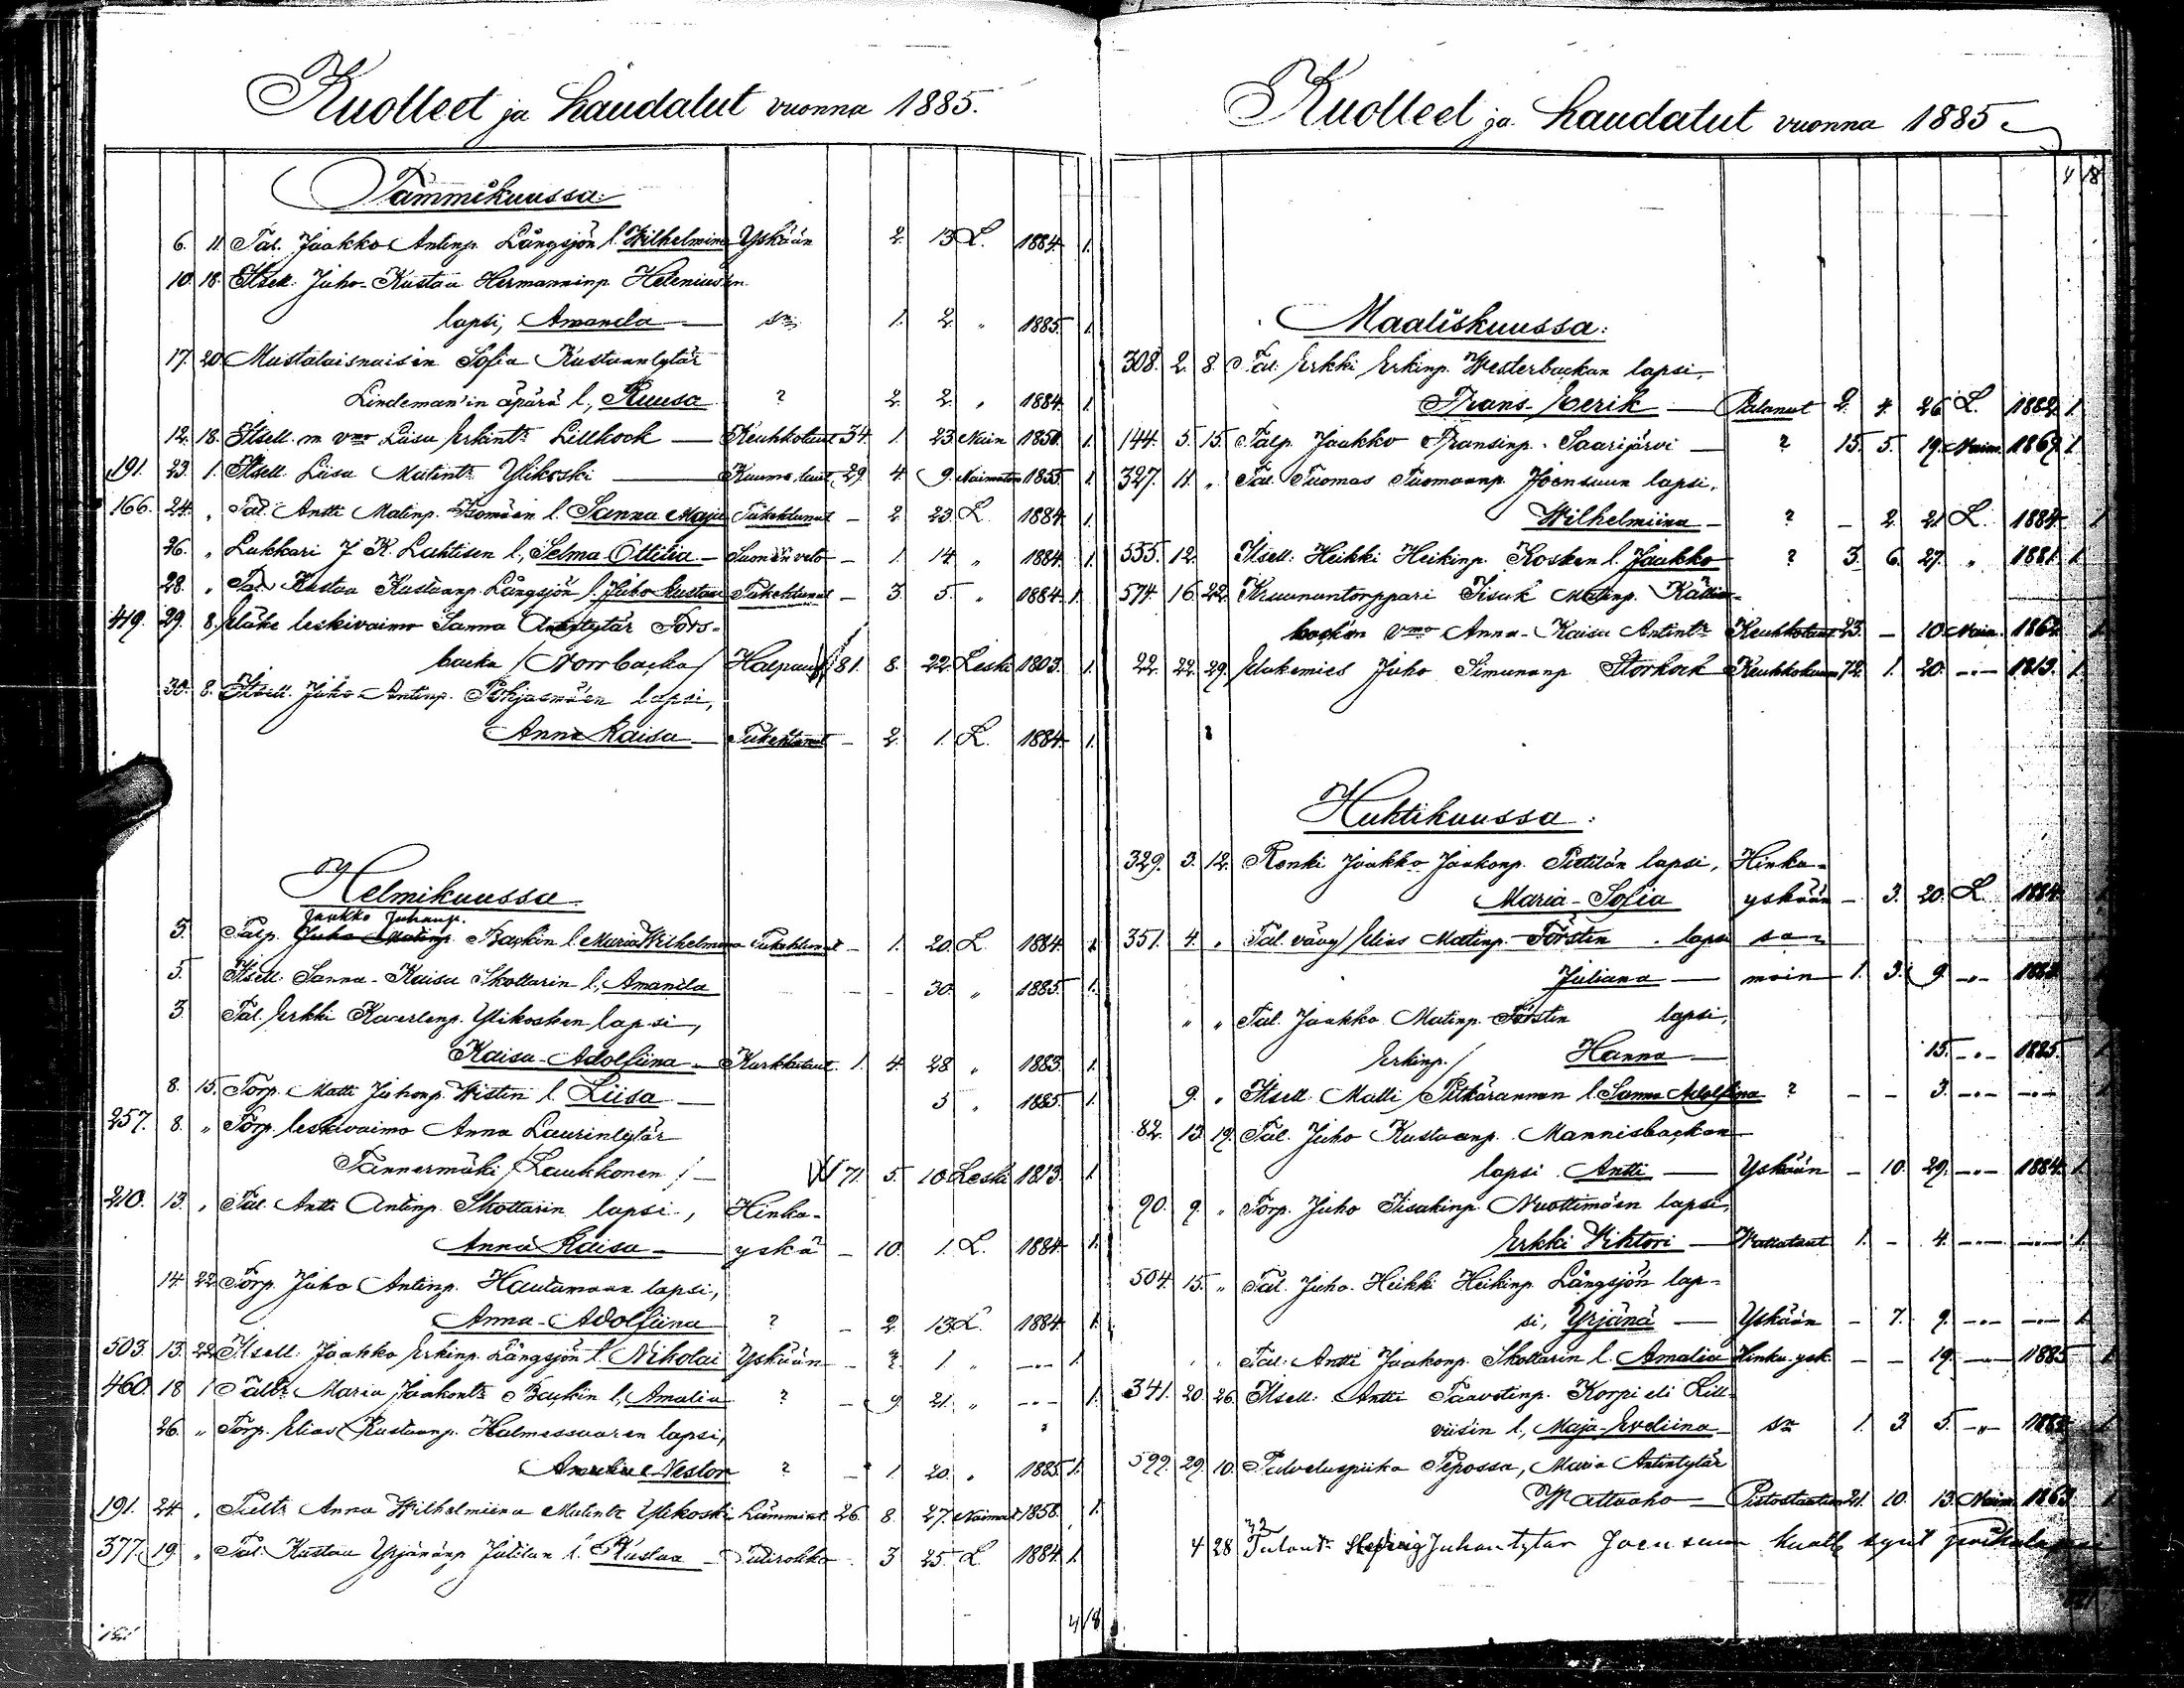 Kuolleet ja haudatut vuonna 1885.
Tammikuussa:
6. 11 Tal. Jaakko Antinp. Långsjön l. Wilhelmina Yskään 2. 13 L. 1884. 1.
10. 18. Itsell. Juho-Kustaa Hermanninp. Heleniuksen
lapsi, Amanda — sm 1. 2. " 1885. 1.
17. 20 Mustalaisnaisen Sofia Kustaantytär
Lindeman'in äpärä l., Ruusa ? 2. 2. " 1884. 1.
12. 18. Itsell. m. vmo Liisa Erkintr Lillkock — Keuhkotaut 34. 1. 23 Nain 1850. 1.
191. 23. 1. Itsell. Liisa Matintr Ylikoski — Kuume taut. 29 4. 9. Naimaton 1855. 1
166. 24. " Tal. Antti Matinp. Isomäen l. Sanna Maja Tukehtunut — 2 23. L. 1884 1.
26. " Lukkari J. K. Lahtisen l., Selma Ottilia — Suonen veto — 1. 14. " 1884. 1.
28. " Tal. Kustaa Kustaanp. Långsjön l. Juho Kustaa Tukehtunut — 3. 5. " 1884. 1.
419. 29. 8. Eläke leskivaimo Sanna Antintytär Fors-
backa /Norrbacka/ Halpaus 81. 8. 22. Leski 1803. 1.
30. 8. Itsell. Juho Antinp. Pohjasmäen lapsi,
Anna Kaisa — Tukehtunut — 2. 1. L. 1884. 1.
Helmikuussa
Jaakko Juhanp.
3. Talp. Juho Matinp. Backin l. Maria Wilhelmiina Tukehtunut — 1. 20. L. 1884. 1
5. Itsell. Sanna-Kaisa Skottarin l., Amanda — — 30. " 1885. 1.
3. Tal. Erkki Kaverlenp. Ylikosken lapsi,
Kaisa-Adolfiina — Kurkkutaut. 1. 4. 28 " 1883. 1.
8. 15. Torp. Matti Juhonp. Wistin l. Liisa — 5 " 1885. 1.
257. 8. " Torp. leskivaimo Anna Laurintytär
Tännermäki /Laukkonen/ — 71. 5. 10. Leski 1813. 1
210. 13. " Tal. Antti Antinp. Skottarin lapsi, Hinku-
Anna Kaisa — yskä — 10. 1. L. 1884. 1.
14. 22. Torp. Juho Antinp. Hautamaan lapsi,
Anna-Adolfiina ? — 2. 13 L. 1884. 1.
503. 13. 22. Itsell. Jaakko Erkinp. Långsjön l. Nikolai Yskään — ?. 1. " —"— 1.
460. 18. 1 Taltr Maria Jaakontr Backin l., Amalia ? — 9. 21. " —"— 1.
26. " Torp. Elias Kustaanp. Halmessaaren lapsi,
Nestor ? — 1. 20. " 1885 1.
191. 24. " Taltr Anna Wilhelmiina Matintr Ylikoski 26. 8. 27. Naimat 1858. 1.
377. 19. " Tal. Kustaa Yrjänänp. Jutilan l. Kustaa — Tulirokko — 3 25. L 1884. 1.
4 18
Kuolleet ja haudatut vuonna 1885
4 18
Maaliskuussa:
308. 2. 8. Tal. Erkki Erkinp. Westerbackan lapsi,
Frans-Eerik — Palanut 2. 4. 26 L. 1882. 1.
144. 5. 15. Talp. Jaakko Fransinp. Saarijärvi — ? 15. 5. 19. Naim. 1869. 1.
327. 11. " Tal. Tuomas Tuomaanp. Joensuun lapsi,
Wilhelmiina — ? — 2. 21. L. 1884. 1
555. 12. Itsell. Heikki Heikinp. Kosken l. Jaakko ? 3. 6. 27. " 1881. 1.
574. 16. 22. Kruununtorppari Iisak Matinp.
vmo Anna-Kaisa Antintr Keuhkotaut 23. — 10. Nain. 1862. 1.
22. 22. 29. Eläkemies Juho Simunanp. Storkock Keuhkokuum 72. 1. 20. —"— 1813. 1.
Huhtikuussa:
329. 3. 12. Renki Jaakko Jaakonp. Pietilän lapsi, Hinku-
Maria-Sofia yskään — 3. 20. L. 1884. 1
351. 4. " Tal. vävy Elias Matinp. Förstin lapsi sa-
Juliana — moin 1. 3. 9. —"— 1
" " Tal. Jaakko Matinp. Förstin lapsi,
Erkinp./ Hanna — 15. —"— 1885. 1
9. " Itsell. Matti Pitkärannan l. Sanna Adolfiina ? — — 3. —"— —"— 1
82. 13. 19. Tal. Juho Kustaanp. Mannisbackan
lapsi Antti — Yskään — 10. 29. —"— 1884. 1.
90. 9. " Torp. Juho Iisakinp. Nuottimäen lapsi,
Erkki Wiktori — Wattataut 1. — 4. —"— —"— 1.
504. 15. " Tal. Juho-Heikki Heikinp. Långsjön lap-
si, Yrjänä — Yskään — 7. 9. —"— —"— 1.
" " Tal. Antti Jaakonp. Skottarin l. Amalia Hinku ysk. — — 19. —"— 1885 1
341. 20. 26. Itsell. Antti Taavetinp. Korpi eli Lill-
viisin l., Maja-Eveliina — sm 1. 3. 5. —"— 1
599. 29. 10. Palveluspiika Tepossa, Maria Antintytär
Wattuaho — Pistostautiin 21. 10. 13. Naim. 1863. 1
4 28 Juhantytär Joensuun